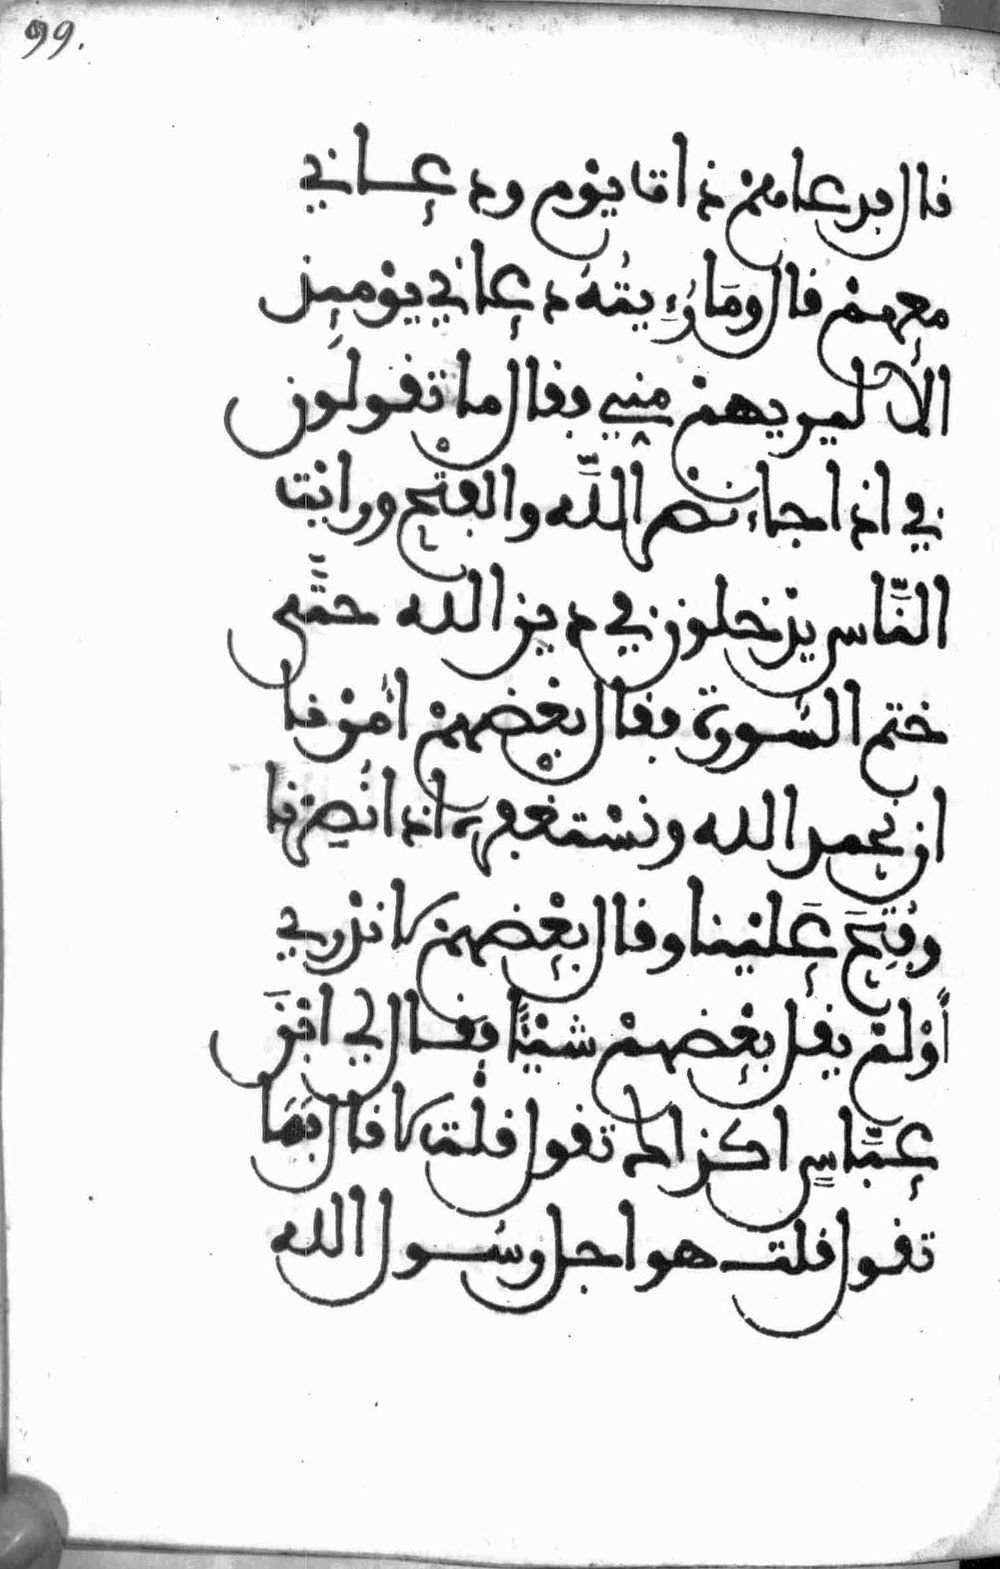 99.
قال فدعاهم ذات يوم ودعاني
معهم قال وما رءيته دعاني يومئذ
الا ليريهم مني فقال ما تقولون
في اذا جاء نصر الله والفتح ورايت
الناس يدخلون في دين الله حتى
ختم السورة فقال بعضهم امرنا
ان نحمد الله ونستغفره اذا نصرنا
وفتح علينا وقال بعضهم لا ندري
أو لم يقل بعضهم شيئا فقال لي ابن
عباس اكذاك تقول قلت لا قال فما
تقول قلت هو اجل رسول الله